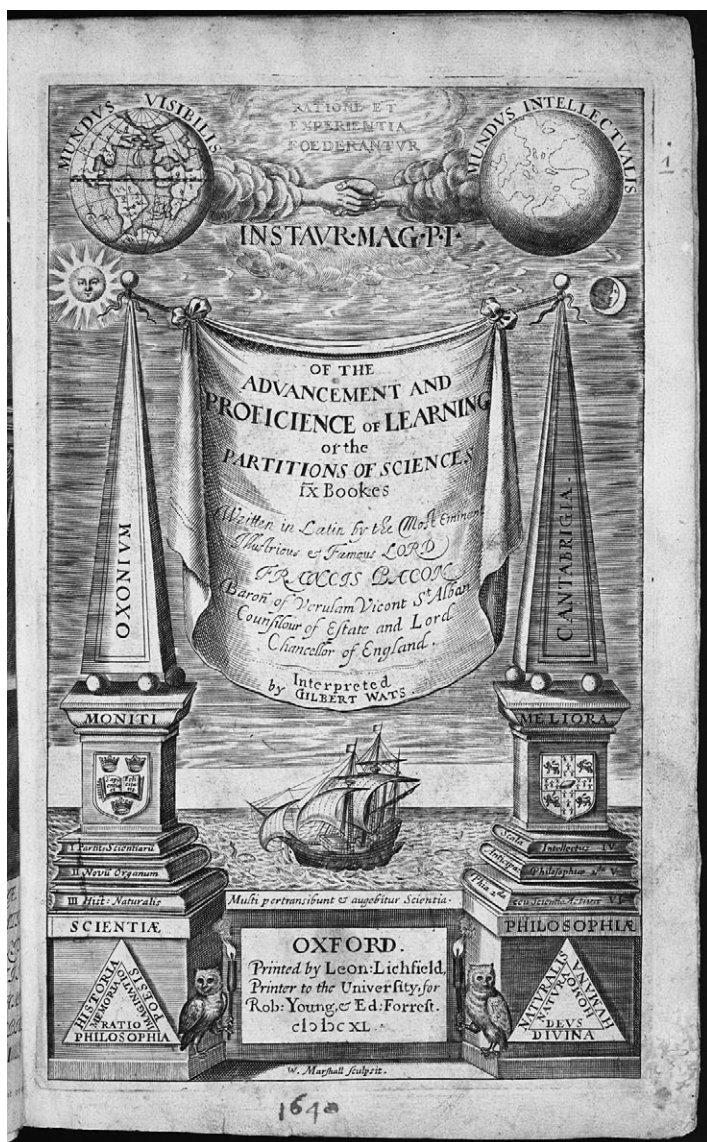 MUNDVS VISIBILIS
RATIONE ET
EXPERIENTIA
FOEDERANTVR
MUNDVS INTELLECTVALIS
1
INSTAVR·MAG·P·I·
OF THE
ADVANCEMENT AND
PROFICIENCE OF LEARNING
or the
PARTITIONS OF SCIENCES
IX Bookes
Written in Latin by the Most Eminent
Illustrious & Famous LORD
FRANCIS BACON
Baron of Verulam Vicont St Alban
Counsilour of Estate and Lord
Chancellor of England.
Interpreted
by GILBERT WATS.
OXONIVM
CANTABRIGIA
MONITI
MELIORA
I Partit: Scientiarū
II Novū Organum
III Hist: Naturalis
Scala Intellectus IV.
Philosophiæ
Phia 2da ceu Scientia Activæ VI
Multi pertransibunt & augebitur Scientia·
SCIENTIÆ
PHILOSOPHIÆ
HISTORIA
MEMORIA
IMAGINATIO
POESIS
RATIO
PHILOSOPHIA
OXFORD.
Printed by Leon: Lichfield,
Printer to the University, for
Rob: Young, & Ed: Forrest.
cIↃ IↃc XL.
NATURALIS
NATURA
HOMO
HUMANA
DEVS
DIVINA
W. Marshall sculpsit.
1640